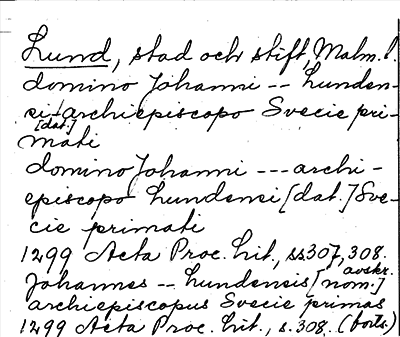 Lund, stad och stift, Malm. l.
domino Johanni -- Lunden-
si archiepiscopo Svecie pri-
[dat.]
mati
domino Johanni --- archi-
episcopo Lundensi [dat.] Sve-
cie primati
1299 Acta Proc. Lit., ss 307, 308.
avskr.
Johannes -- Lundensis [nom.]
archiepiscopus Svecie primas
1299 Acta Proc. Lit., s. 308. (forts.)